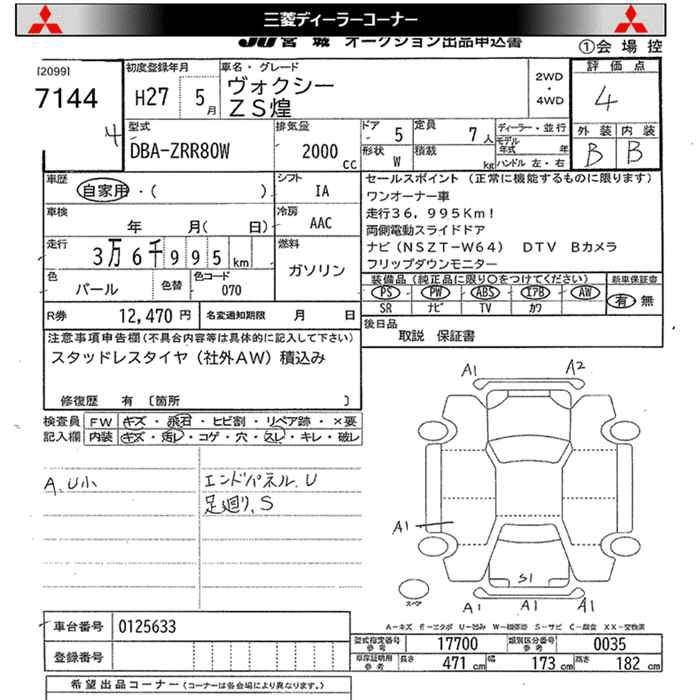 三菱ディーラーコーナー
JU宮城 オークション出品申込書
①会場控
[2099]
7144
4
初度登録年月
H27 5月
車名・グレード
ヴォクシー
ZS煌
2WD
・
4WD
評価点
4
外装 内装
B B
型式
DBA-ZRR80W
排気量
2000 cc
ドア 5
定員 7人
形状 W
積載 kg
ディーラー・並行
モデル年式 年
ハンドル 左・右
車歴
自家用・( )
シフト
IA
車検
年 月( 日)
冷房
AAC
走行
3万6千995km
燃料
ガソリン
色
パール
色替
色コード
070
R券 12,470円
名変通知期限 月 日
セールスポイント (正常に機能するものに限ります)
ワンオーナー車
走行36,995Km!
両側電動スライドドア
ナビ(NSZT-W64) DTV Bカメラ
フリップダウンモニター
装備品(純正品に限り○をつけてください)
新車保証書
PS PW ABS エアB AW
SR ナビ TV カワ
有 無
後日品
取説 保証書
注意事項申告欄(不具合内容等は具体的に記入して下さい)
スタッドレスタイヤ(社外AW)積込み
修復歴 有 〔箇所 〕
検査員
記入欄
FW キズ・飛石・ヒビ割・リペア跡・×要
内装 キズ・汚レ・コゲ・穴・スレ・キレ・破レ
A,U小
エンドパネル,U
足廻り,S
A1 A2
A1
S1
A1 A1 A1
スペア
A-キズ E-エクボ U-凹み W-補修跡 S-サビ C-腐食 XX-交換済
車台番号 0125633
登録番号
型式指定番号 参考 17700
類別区分番号 参考 0035
車庫証明用 参考 長さ 471cm 幅 173cm 高さ 182cm
希望出品コーナー(コーナーは各会場により異なります。)